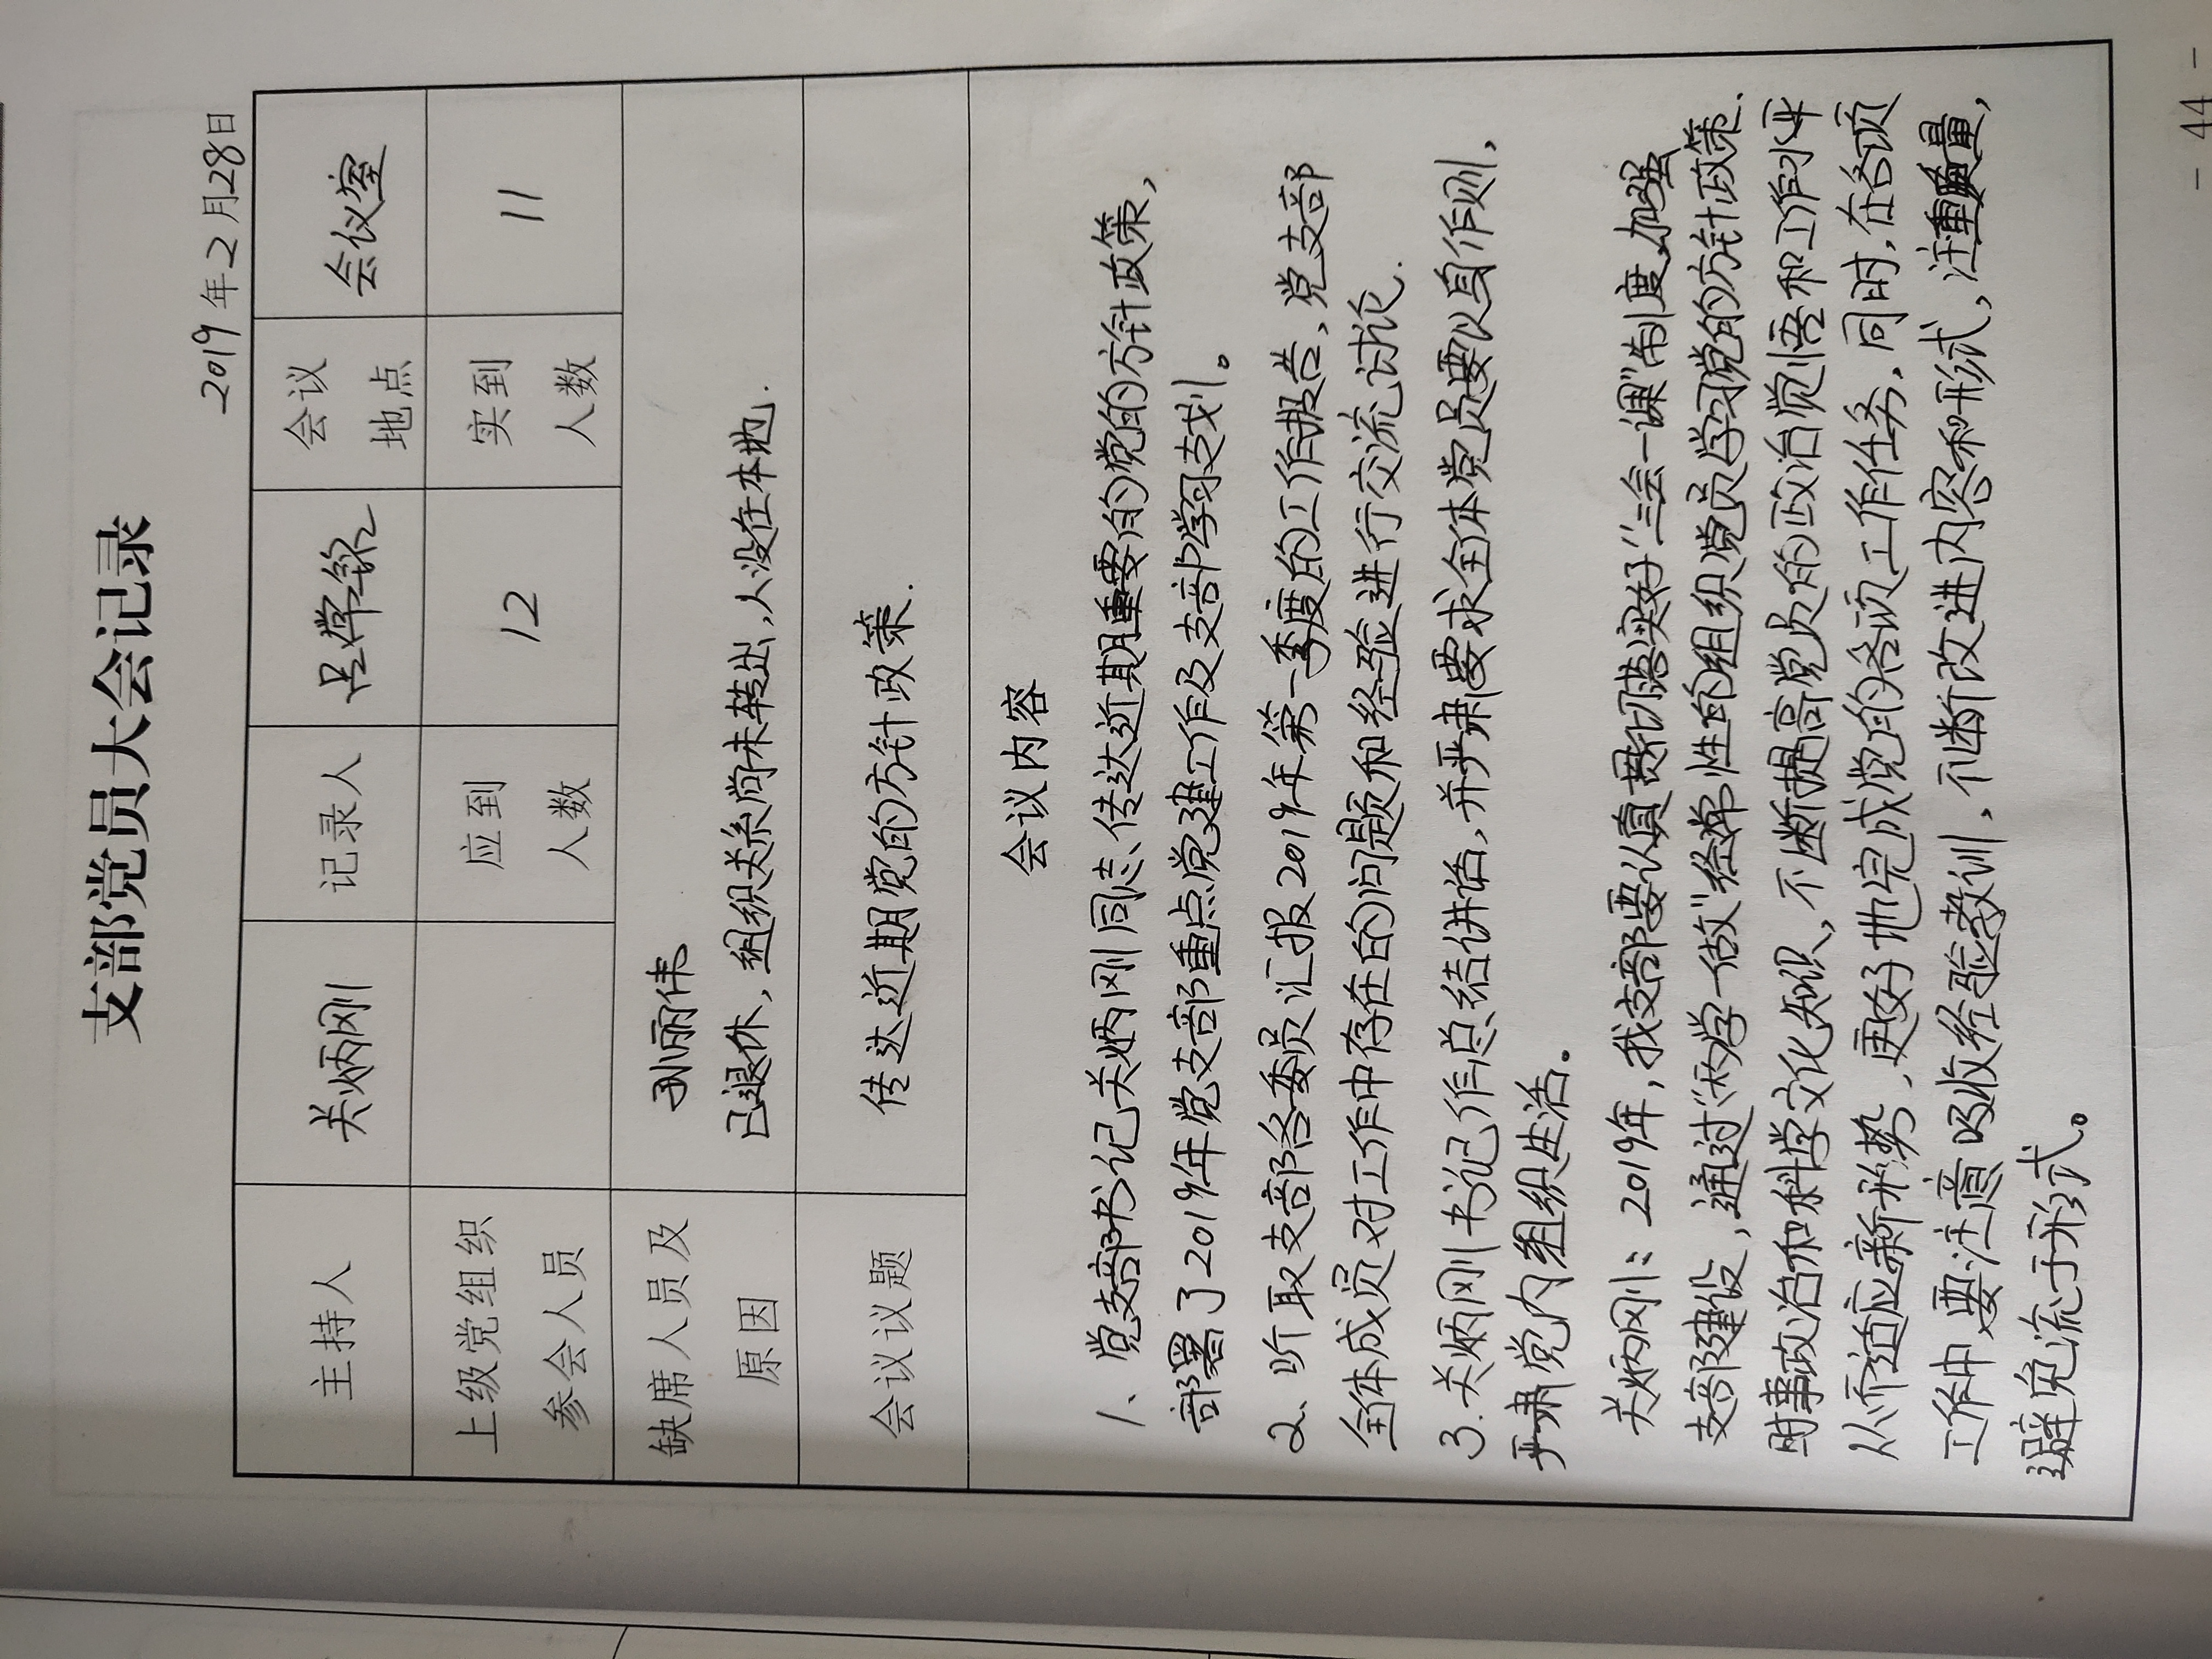 支部党员大会记录
2019年2月28日
主持人 关炳刚 记录人 吕学铭 会议地点 会议室
上级党组织参会人员 应到人数 12 实到人数 11
缺席人员及原因 孙丽伟
已退休，组织关系尚未转出，人没在本地.
会议议题 传达近期党的方针政策.
会议内容
1、党支部书记关炳刚同志、传达近期重要的党的方针政策，
部署了2019年党支部重点党建工作及支部学习支划。
2、听取支部各委员汇报2019年第一季度的工作报告，党支部
全体成员对工作中存在的问题和经验进行交流讨论.
3.关炳刚书记作总结讲话，并严肃要求全体党员要以身作则，
严肃党内组织生活。
关炳刚：2019年，我支部要认真贯切落实好“三会一课”制度，加强
支部建设，通过“两学一做”经常性的组织党员学习党的方针政策.
时事政治和科学文化知识，不断提高党员的政治觉悟和工作水平
从而适应新形势，更好地完成党的各项工作任务，同时，在各项
工作中要注意吸收经验教训，不断改进内容和形式，注重质量，
避免流于形式。
- 44 -